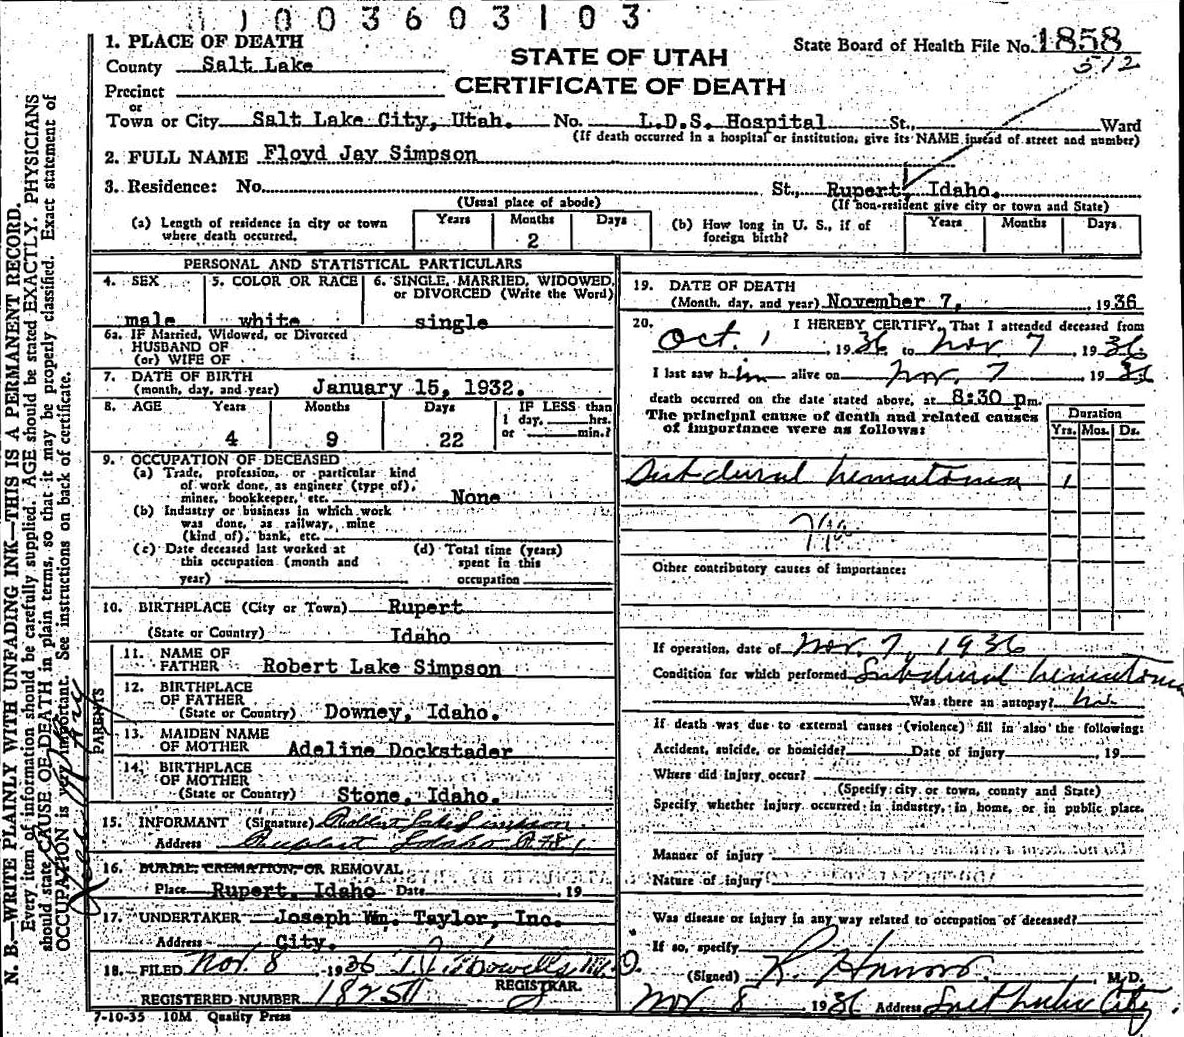 1003603103
1. PLACE OF DEATH
County Salt Lake
Precinct
or
Town or City Salt Lake City, Utah. No. L.D.S. Hospital St., Ward
(If death occurred in a hospital or institution, give its NAME instead of street and number)
STATE OF UTAH
CERTIFICATE OF DEATH
State Board of Health File No. 1858
512
2. FULL NAME Floyd Jay Simpson
3. Residence: No. St., Rupert, Idaho.
(Usual place of abode) (If non-resident give city or town and State)
(a) Length of residence in city or town where death occurred. Years Months 2 Days
(b) How long in U. S., if of foreign birth? Years Months Days
PERSONAL AND STATISTICAL PARTICULARS
4. SEX 5. COLOR OR RACE 6. SINGLE, MARRIED, WIDOWED,
or DIVORCED (Write the Word)
male white single
6a. IF Married, Widowed, or Divorced
HUSBAND OF
(or) WIFE OF
7. DATE OF BIRTH
(month, day, and year) January 15, 1932.
8. AGE Years Months Days IF LESS than
1 day, hrs.
or min.?
4 9 22
9. OCCUPATION OF DECEASED
(a) Trade, profession, or particular kind
of work done, as engineer (type of),
miner, bookkeeper, etc. None
(b) Industry or business in which work
was done, as railway, mine
(kind of), bank, etc.
(c) Date deceased last worked at
this occupation (month and
year)
(d) Total time (years)
spent in this
occupation
10. BIRTHPLACE (City or Town) Rupert
(State or Country) Idaho
PARENTS
11. NAME OF
FATHER Robert Lake Simpson
12. BIRTHPLACE
OF FATHER
(State or Country) Downey, Idaho.
13. MAIDEN NAME
OF MOTHER Adeline Dockstader
14. BIRTHPLACE
OF MOTHER
(State or Country) Stone, Idaho.
15. INFORMANT (Signature) Robert Lake Simpson
Address Rupert Idaho
16. BURIAL, CREMATION, OR REMOVAL
Place Rupert, Idaho Date 19
17. UNDERTAKER Joseph Wm. Taylor, Inc.
Address City.
18. FILED Nov. 8 1936
REGISTRAR.
REGISTERED NUMBER
7-10-35 10M Quality Press
19. DATE OF DEATH
(Month, day, and year) November 7, 1936
20. I HEREBY CERTIFY, That I attended deceased from
Oct. 1, 1936 to Nov 7, 1936
I last saw him alive on Nov. 7 1936
death occurred on the date stated above, at 8:30 pm.
The principal cause of death and related causes
of importance were as follows:
Duration
Yrs. Mos. Ds.
Subdural hematoma 1
Other contributory causes of importance:
If operation, date of Nov. 7, 1936
Condition for which performed Subdural hematoma
Was there an autopsy? no.
If death was due to external causes (violence) fill in also the following:
Accident, suicide, or homicide? Date of injury 19
Where did injury occur?
(Specify city or town, county and State)
Specify whether injury occurred in industry, in home, or in public place.
Manner of injury
Nature of injury
Was disease or injury in any way related to occupation of deceased?
If so, specify
(Signed) M.D.
Nov. 8 1936 Address Salt Lake City
N. B.—WRITE PLAINLY WITH UNFADING INK—THIS IS A PERMANENT RECORD.
Every item of information should be carefully supplied. AGE should be stated EXACTLY. PHYSICIANS
should state CAUSE OF DEATH in plain terms, so that it may be properly classified. Exact statement of
OCCUPATION is very important. See instructions on back of certificate.